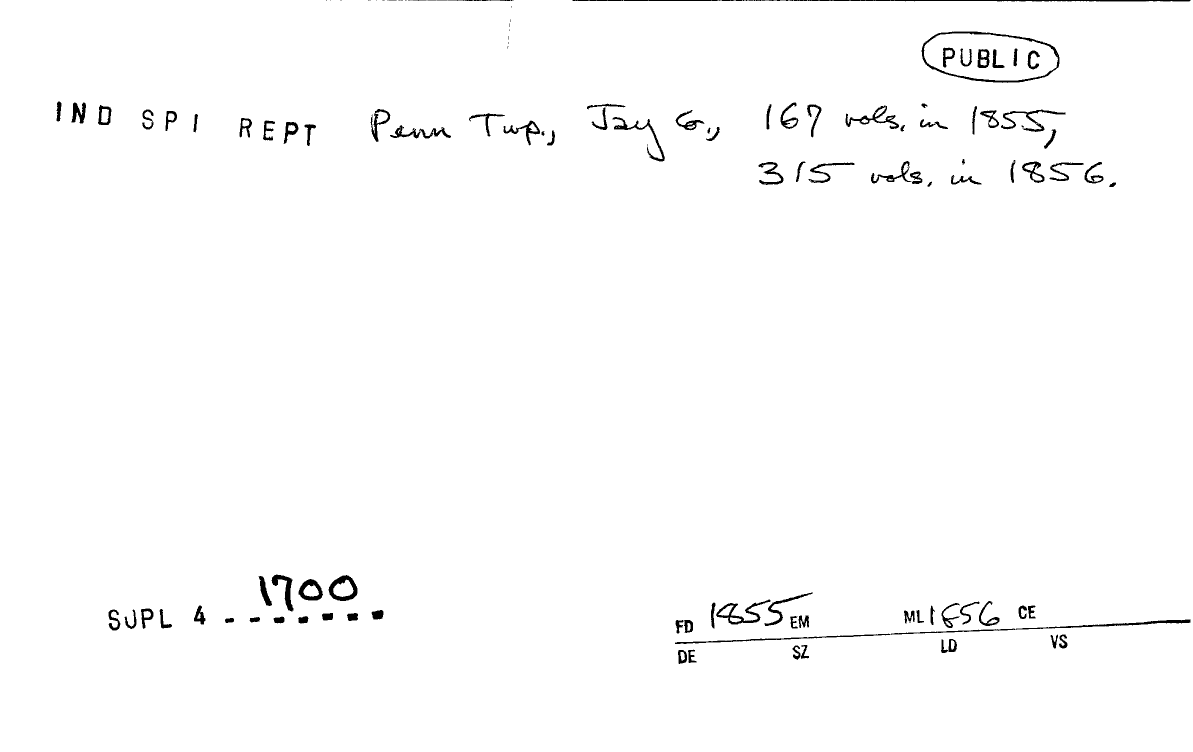 PUBLIC
IND SPI REPT Penn Twp., Jay Co., 167 vols. in 1855,
315 vols. in 1856.
1700
SUPL 4 - - - - - - -
FD 1855 EM ML 1856 CE
DE SZ LD VS